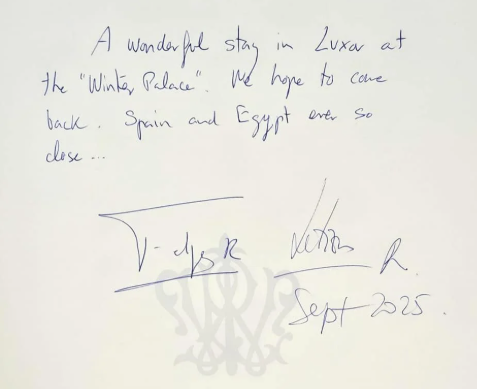 A wonderful stay in Luxor at
the "Winter Palace". We hope to come
back. Spain and Egypt ever so
close...
R
R.
Sept 2025.